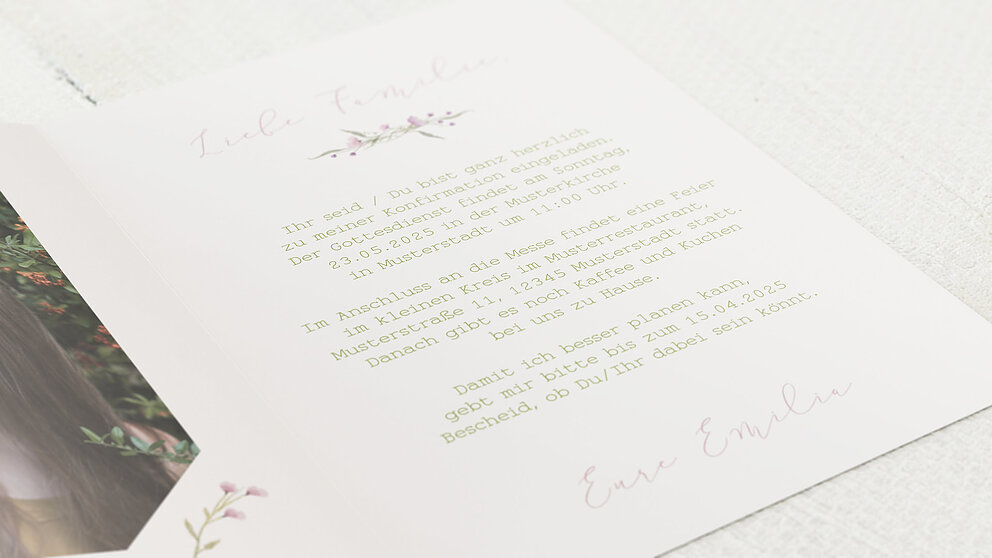 Liebe Familie,
Ihr seid / Du bist ganz herzlich
zu meiner Konfirmation eingeladen.
Der Gottesdienst findet am Sonntag,
23.05.2025 in der Musterkirche
in Musterstadt um 11:00 Uhr.
Im Anschluss an die Messe findet eine Feier
im kleinen Kreis im Musterrestaurant,
Musterstraße 11, 12345 Musterstadt statt.
Danach gibt es noch Kaffee und Kuchen
bei uns zu Hause.
Damit ich besser planen kann,
gebt mir bitte bis zum 15.04.2025
Bescheid, ob Du/Ihr dabei sein könnt.
Eure Emilia